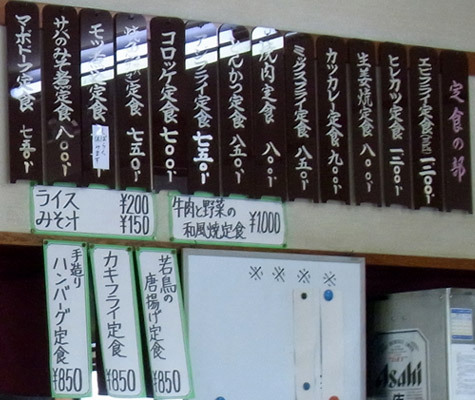 定食の部
エビフライ定食(三匹) 一二〇〇
ヒレカツ定食 一三〇〇
生姜焼定食 八〇〇
カツカレー定食 九〇〇
ミックスフライ定食 八五〇
とんかつ定食 八五〇
フライ定食 七五〇
コロッケ定食 七〇〇
定食 七五〇
サバのみそ煮定食 八〇〇
マーボドーフ定食 七五〇
ライス ¥200
みそ汁 ¥150
牛肉と野菜の
和風焼定食 ¥1,000
若鳥の
唐揚げ定食 ¥850
カキフライ定食 ¥850
手造り
ハンバーグ定食 ¥850
※ ※ ※ ※
Asahi